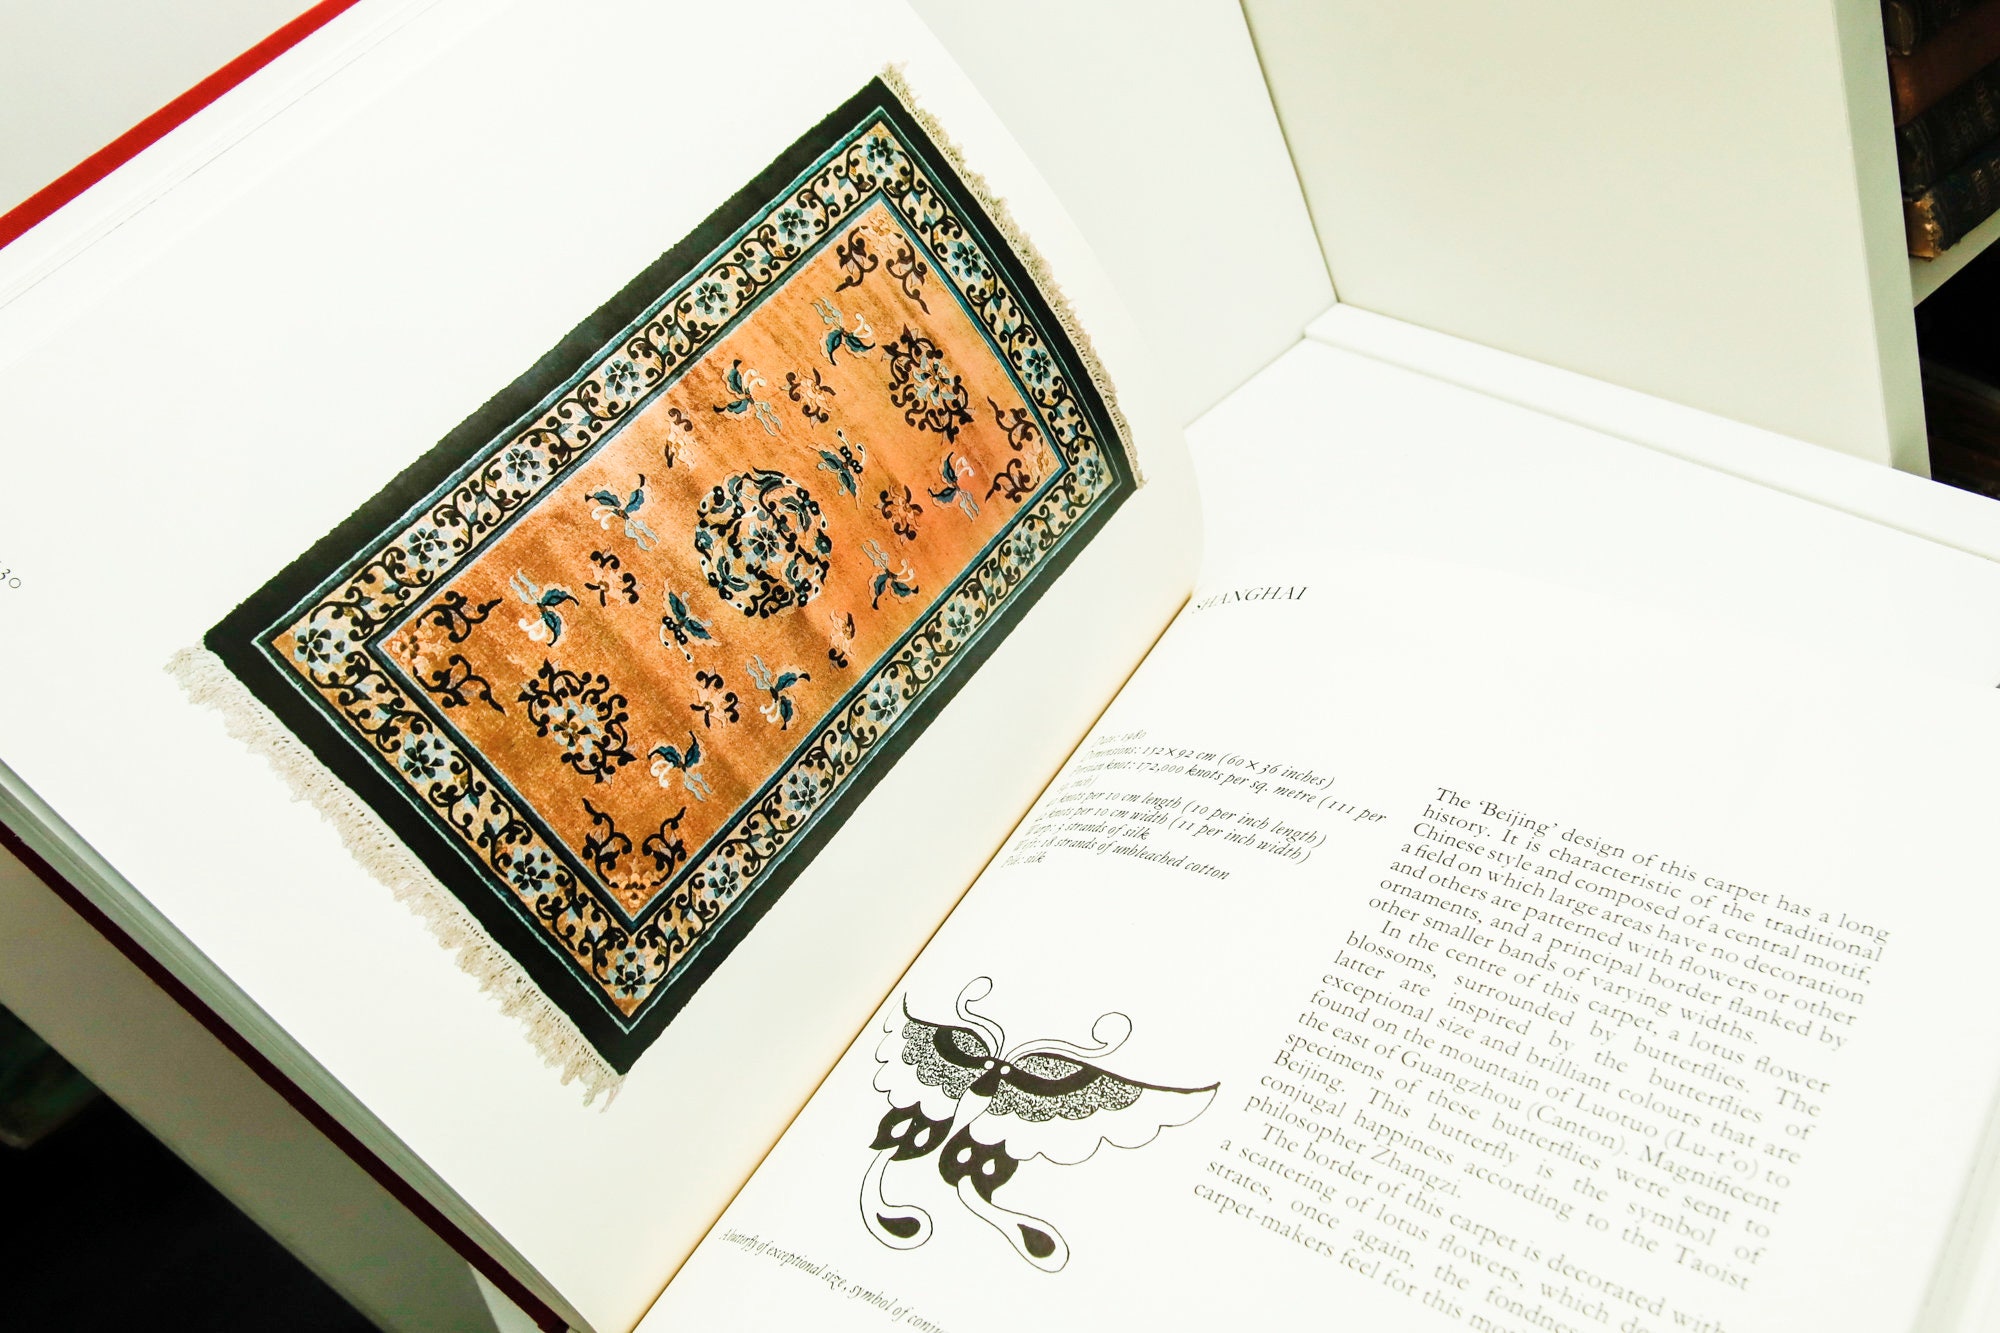 SHANGHAI
Date: 1980
Dimensions: 152 × 92 cm (60 × 36 inches)
Persian knot: 172,000 knots per sq. metre (111 per
sq. inch)
knots per 10 cm length (10 per inch length)
knots per 10 cm width (11 per inch width)
Warp: 3 strands of silk
Weft: 18 strands of unbleached cotton
Pile: silk
The 'Beijing' design of this carpet has a long
history. It is characteristic of the traditional
Chinese style and composed of a central motif,
a field on which large areas have no decoration
and others are patterned with flowers or other
ornaments, and a principal border flanked by
other smaller bands of varying widths.
In the centre of this carpet, a lotus flower
blossoms, surrounded by butterflies. The
latter are inspired by the butterflies of
exceptional size and brilliant colours that are
found on the mountain of Luotuo (Lu-t'o) to
the east of Guangzhou (Canton). Magnificent
specimens of these butterflies were sent to
Beijing. This butterfly is the symbol of
conjugal happiness according to the Taoist
philosopher Zhangzi.
The border of this carpet is decorated with
a scattering of lotus flowers, which
strates, once again, the fondness
carpet-makers feel for this
A butterfly of exceptional size, symbol of